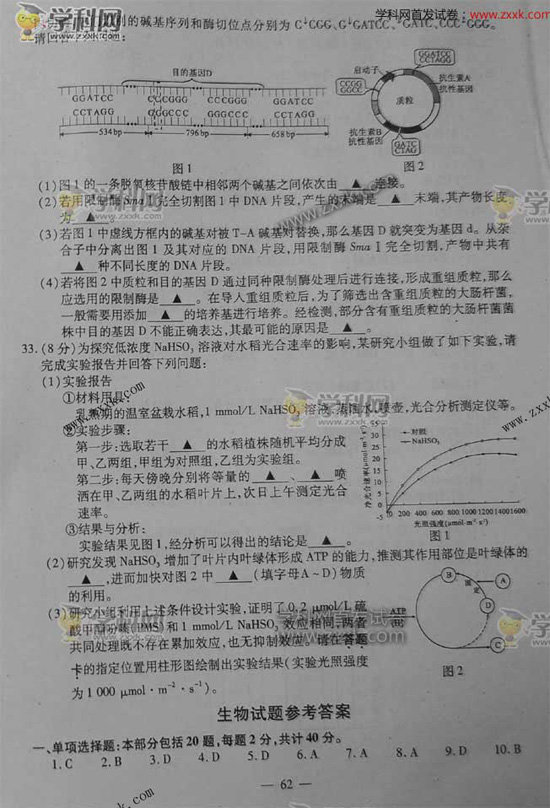 学科网首发试卷:www.zxxk.com
的碱基序列和酶切位点分别为 C↓CGG、G↓GATCC、↓GATC、CCC↓GGG。
目的基因D
GGATCC CCCGGG CCCGGG GGATCC
CCTAGG GGGCCC GGGCCC CCTAGG
534 bp 796 bp 658 bp
图1
启动子
CCGG
GGCC
GGATCC
CCTAGG
抗生素A
抗性基因
质粒
抗生素B
抗性基因
GATC
CTAG
图2
(1)图1的一条脱氧核苷酸链中相邻两个碱基之间依次由 ▲ 连接。
(2)若用限制酶SmaⅠ完全切割图1中DNA片段,产生的末端是 ▲ 末端,其产物长度
为 ▲ 。
(3)若图1中虚线方框内的碱基对被T-A碱基对替换,那么基因D就突变为基因d。从杂
合子中分离出图1及其对应的DNA片段,用限制酶SmaⅠ完全切割,产物中共有
▲ 种不同长度的DNA片段。
(4)若将图2中质粒和目的基因D通过同种限制酶处理后进行连接,形成重组质粒,那么
应选用的限制酶是 ▲ 。在导入重组质粒后,为了筛选出含重组质粒的大肠杆菌,
一般需要用添加 ▲ 的培养基进行培养。经检测,部分含有重组质粒的大肠杆菌菌
株中目的基因D不能正确表达,其最可能的原因是 ▲ 。
33.(8分)为探究低浓度NaHSO₃溶液对水稻光合速率的影响,某研究小组做了如下实验,请
完成实验报告并回答下列问题:
(1)实验报告
①材料用具:
乳熟期的温室盆栽水稻,1 mmol/L NaHSO₃溶液、蒸馏水、喷壶,光合分析测定仪等。
②实验步骤:
第一步:选取若干 ▲ 的水稻植株随机平均分成
甲、乙两组,甲组为对照组,乙组为实验组。
第二步:每天傍晚分别将等量的 ▲ 、 ▲ 喷
洒在甲、乙两组的水稻叶片上,次日上午测定光合
速率。
③结果与分析:
实验结果见图1,经分析可以得出的结论是 ▲ 。
净光合速率(μmol·m⁻²·s⁻¹)
35
30
25
20
15
10
5
0
-5
对照
NaHSO₃
200 400 600 800 1000 1200 1400 1600
光照强度(μmol·m⁻²·s⁻¹)
图1
(2)研究发现NaHSO₃增加了叶片内叶绿体形成ATP的能力,推测其作用部位是叶绿体的
▲ ,进而加快对图2中 ▲ (填字母A~D)物质
的利用。
(3)研究小组利用上述条件设计实验,证明了0.2 μmol/L硫
酸甲酯吩嗪(PMS)和1 mmol/L NaHSO₃效应相同,两者
共同处理既不存在累加效应,也无抑制效应。请在答题
卡的指定位置用柱形图绘制出实验结果(实验光照强度
为1 000 μmol·m⁻²·s⁻¹)。
ATP
[H]
固定
A
B
D
C
图2
生物试题参考答案
一、单项选择题:本部分包括20题,每题2分,共计40分。
1.C 2.B 3.D 4.D 5.D 6.A 7.A 8.A 9.D 10.B
— 62 —
学科网
www.zxxk.com